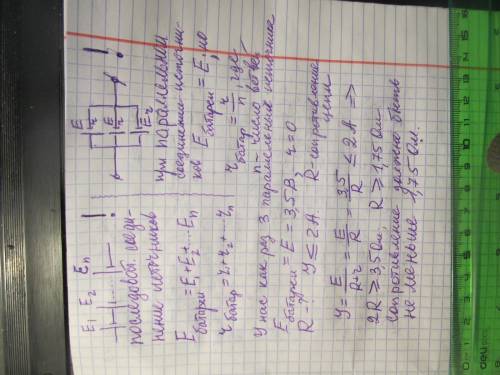 E₁ E₂ Eₙ !
последоват. соеди-
нение источников
E батареи = E₁+E₂+...Eₙ
r батар = r₁+r₂+...rₙ
E r
E r
E r !
при параллельном
соединении источни-
ков E батареи = E, но
r батар = r/n, где
n - число ветвей
У нас как раз 3 параллельных источника
E батареи = E = 3,5 В, r = 0
R - ? I ≤ 2 А R - сопротивление
цепи
I = E/(R+r) = E/R = 3,5/R ≤ 2 А =>
2R ≥ 3,5 Ом, R ≥ 1,75 Ом.
сопротивление должно быть
не меньше 1,75 Ом.